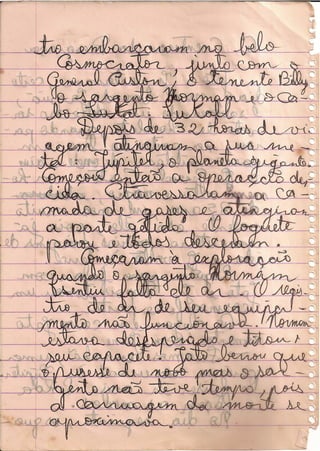 tro embarcaram no belo
Cosmocrator junto com o
General Custon, o tenente Billy
o sargento Thormam e o Ca-
bo
Depois de 32 horas de vi-
agem atingiram a sua me-
ta: Jupiter o planeta gigante.
Começou então a operação de-
cida. Atravessaram a ca-
amada de gases e atingiram
a parte gelida. O foguete
parou e todos desceram.
Começaram a exploração
quando o sargento Normam
sentiu falta de ar. O regis-
tro do ar de seu equipa-
mento não funcionava. Normam
estava desesperado e tirou
seu capacete. Tato berrou que
o pusesse de novo mas o sar-
gento não teve tempo, pois
a carruagem da morte se
aproximava.